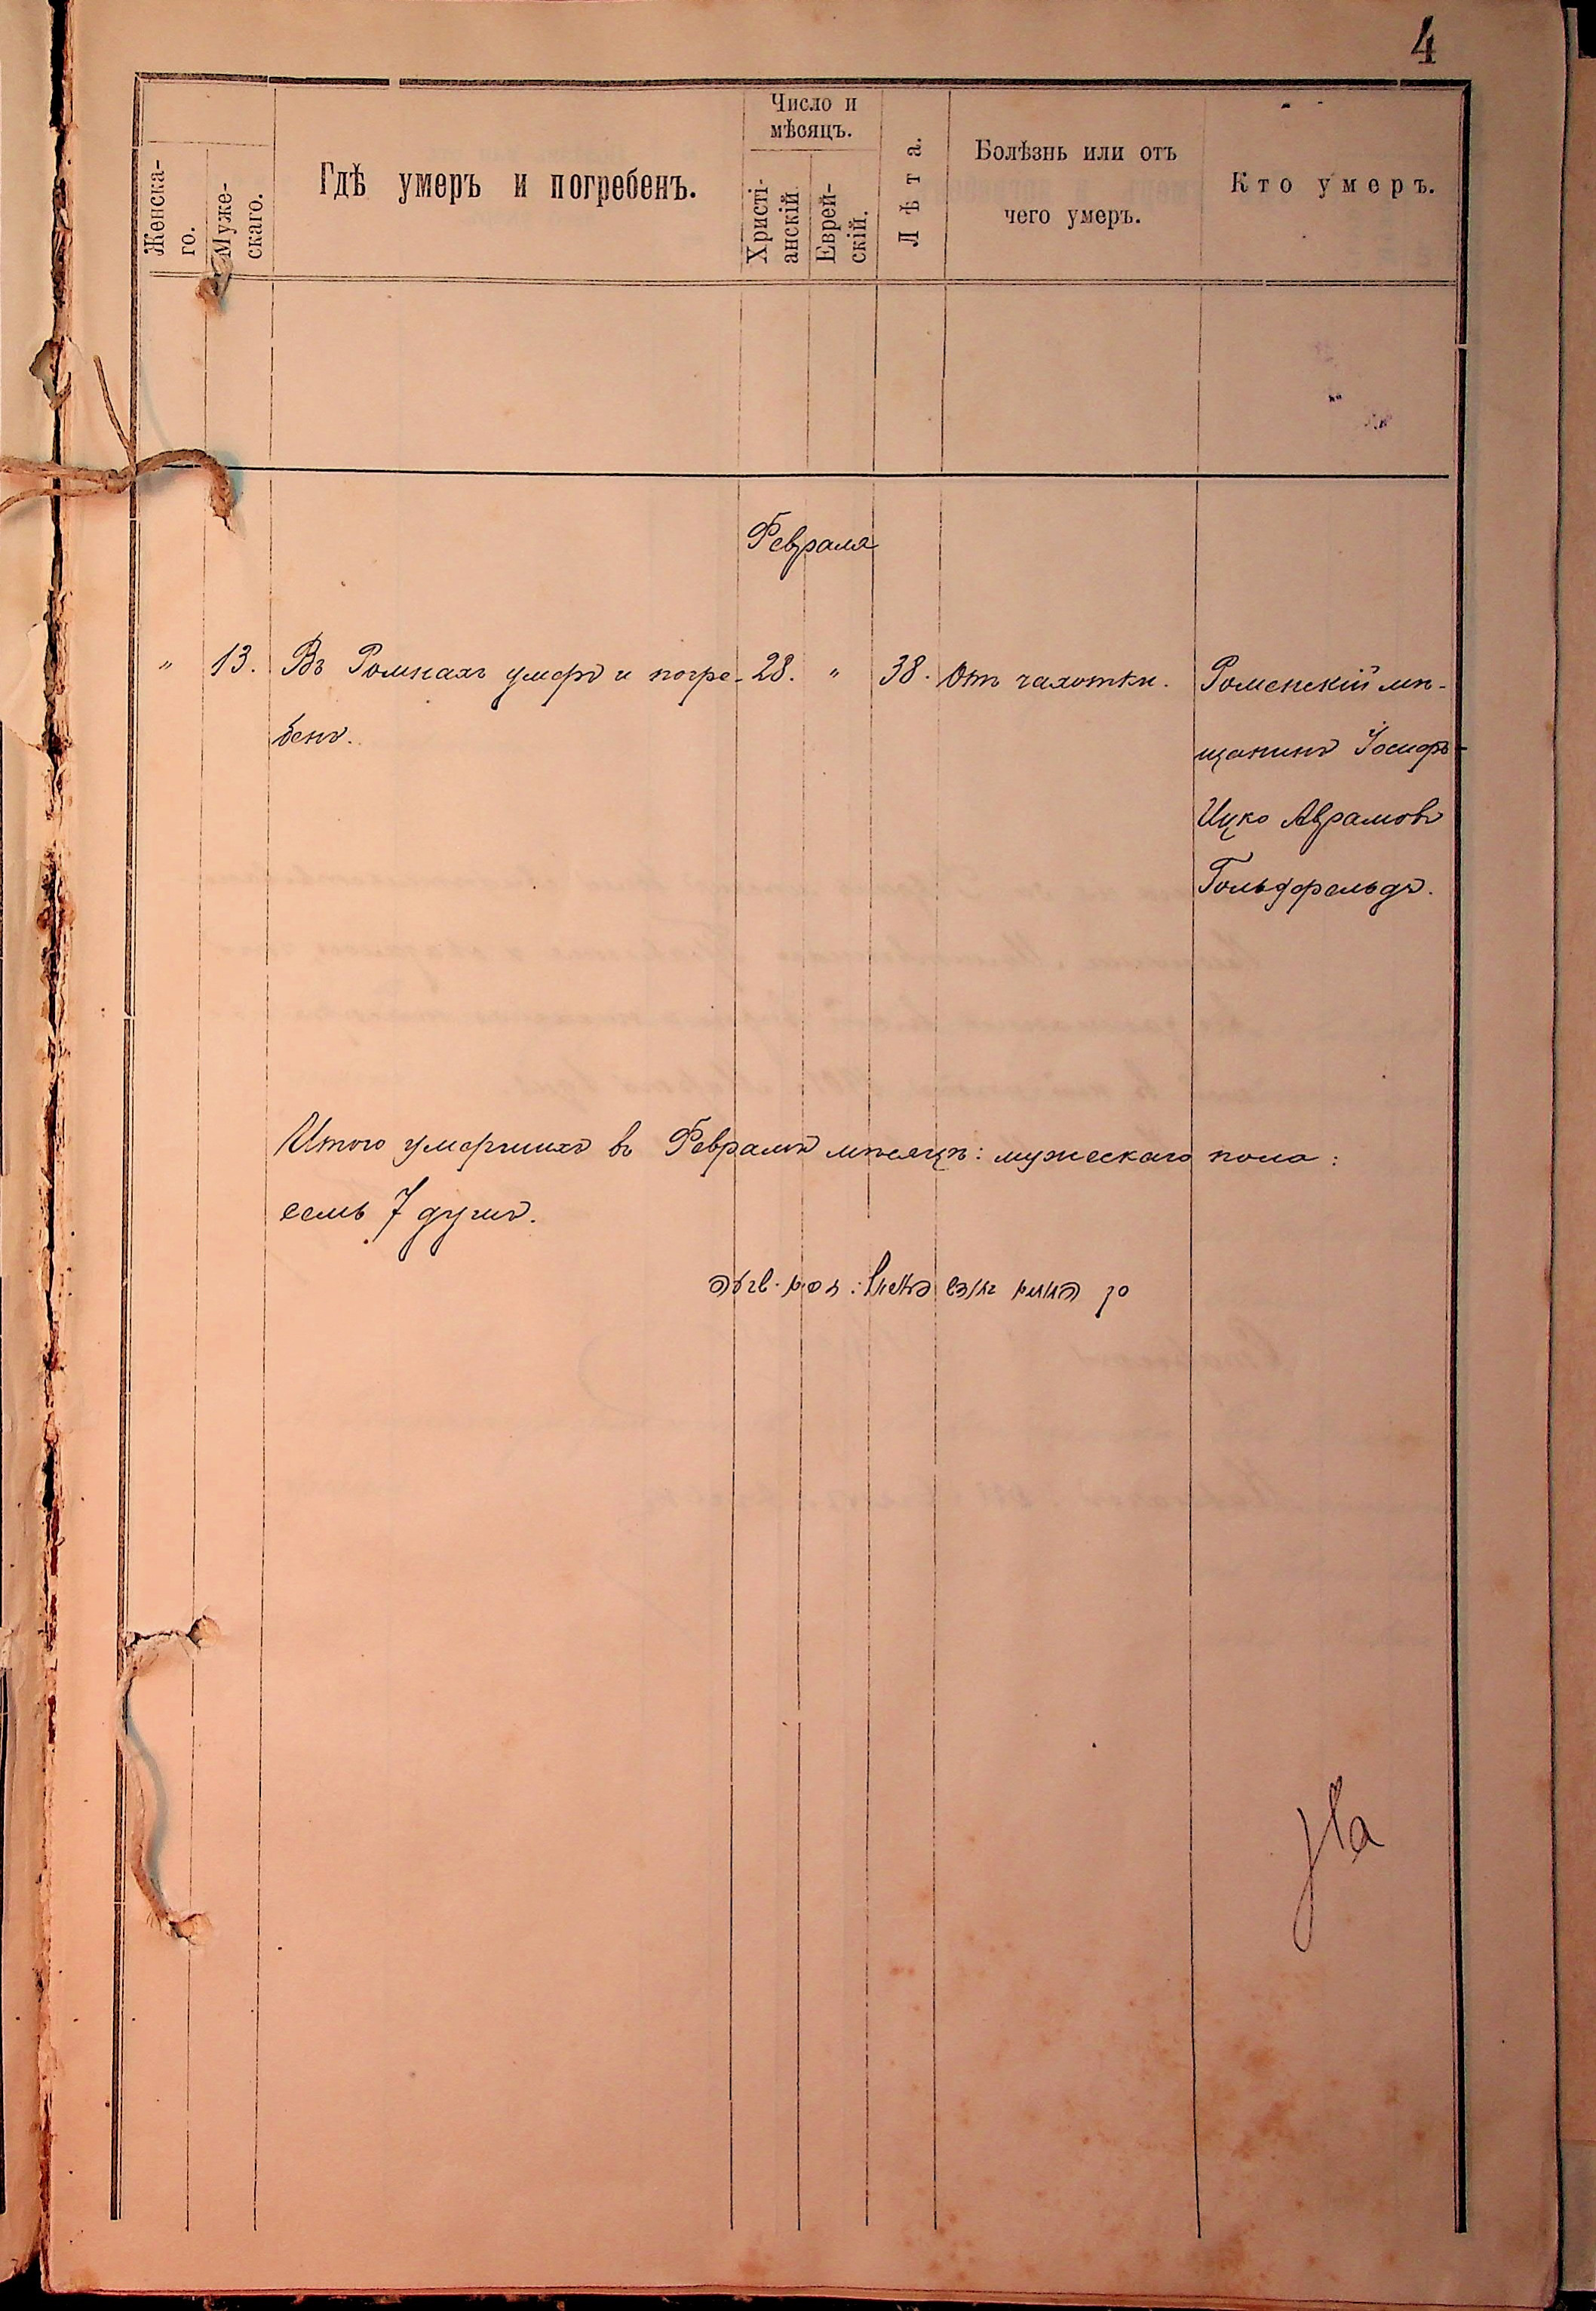 4
Женска-
го.
Муже-
скаго.
Гдѣ умеръ и погребенъ.
Число и
мѣсяцъ.
Христі-
анскій
Еврей-
скій.
Лѣта.
Болѣзнь или отъ
чего умеръ.
Кто умеръ.
Февраля
" 13. Въ Ромнахъ умеръ и погре- 28. " 38. Отъ чахотки. Роменскій мѣ-
бенъ.
щанинъ Іосифъ-
Ицко Аврамовъ
Гольдфельдъ.
Итого умершихъ въ Февралѣ мѣсяцѣ: мужескаго пола:
семь 7 душъ.
На